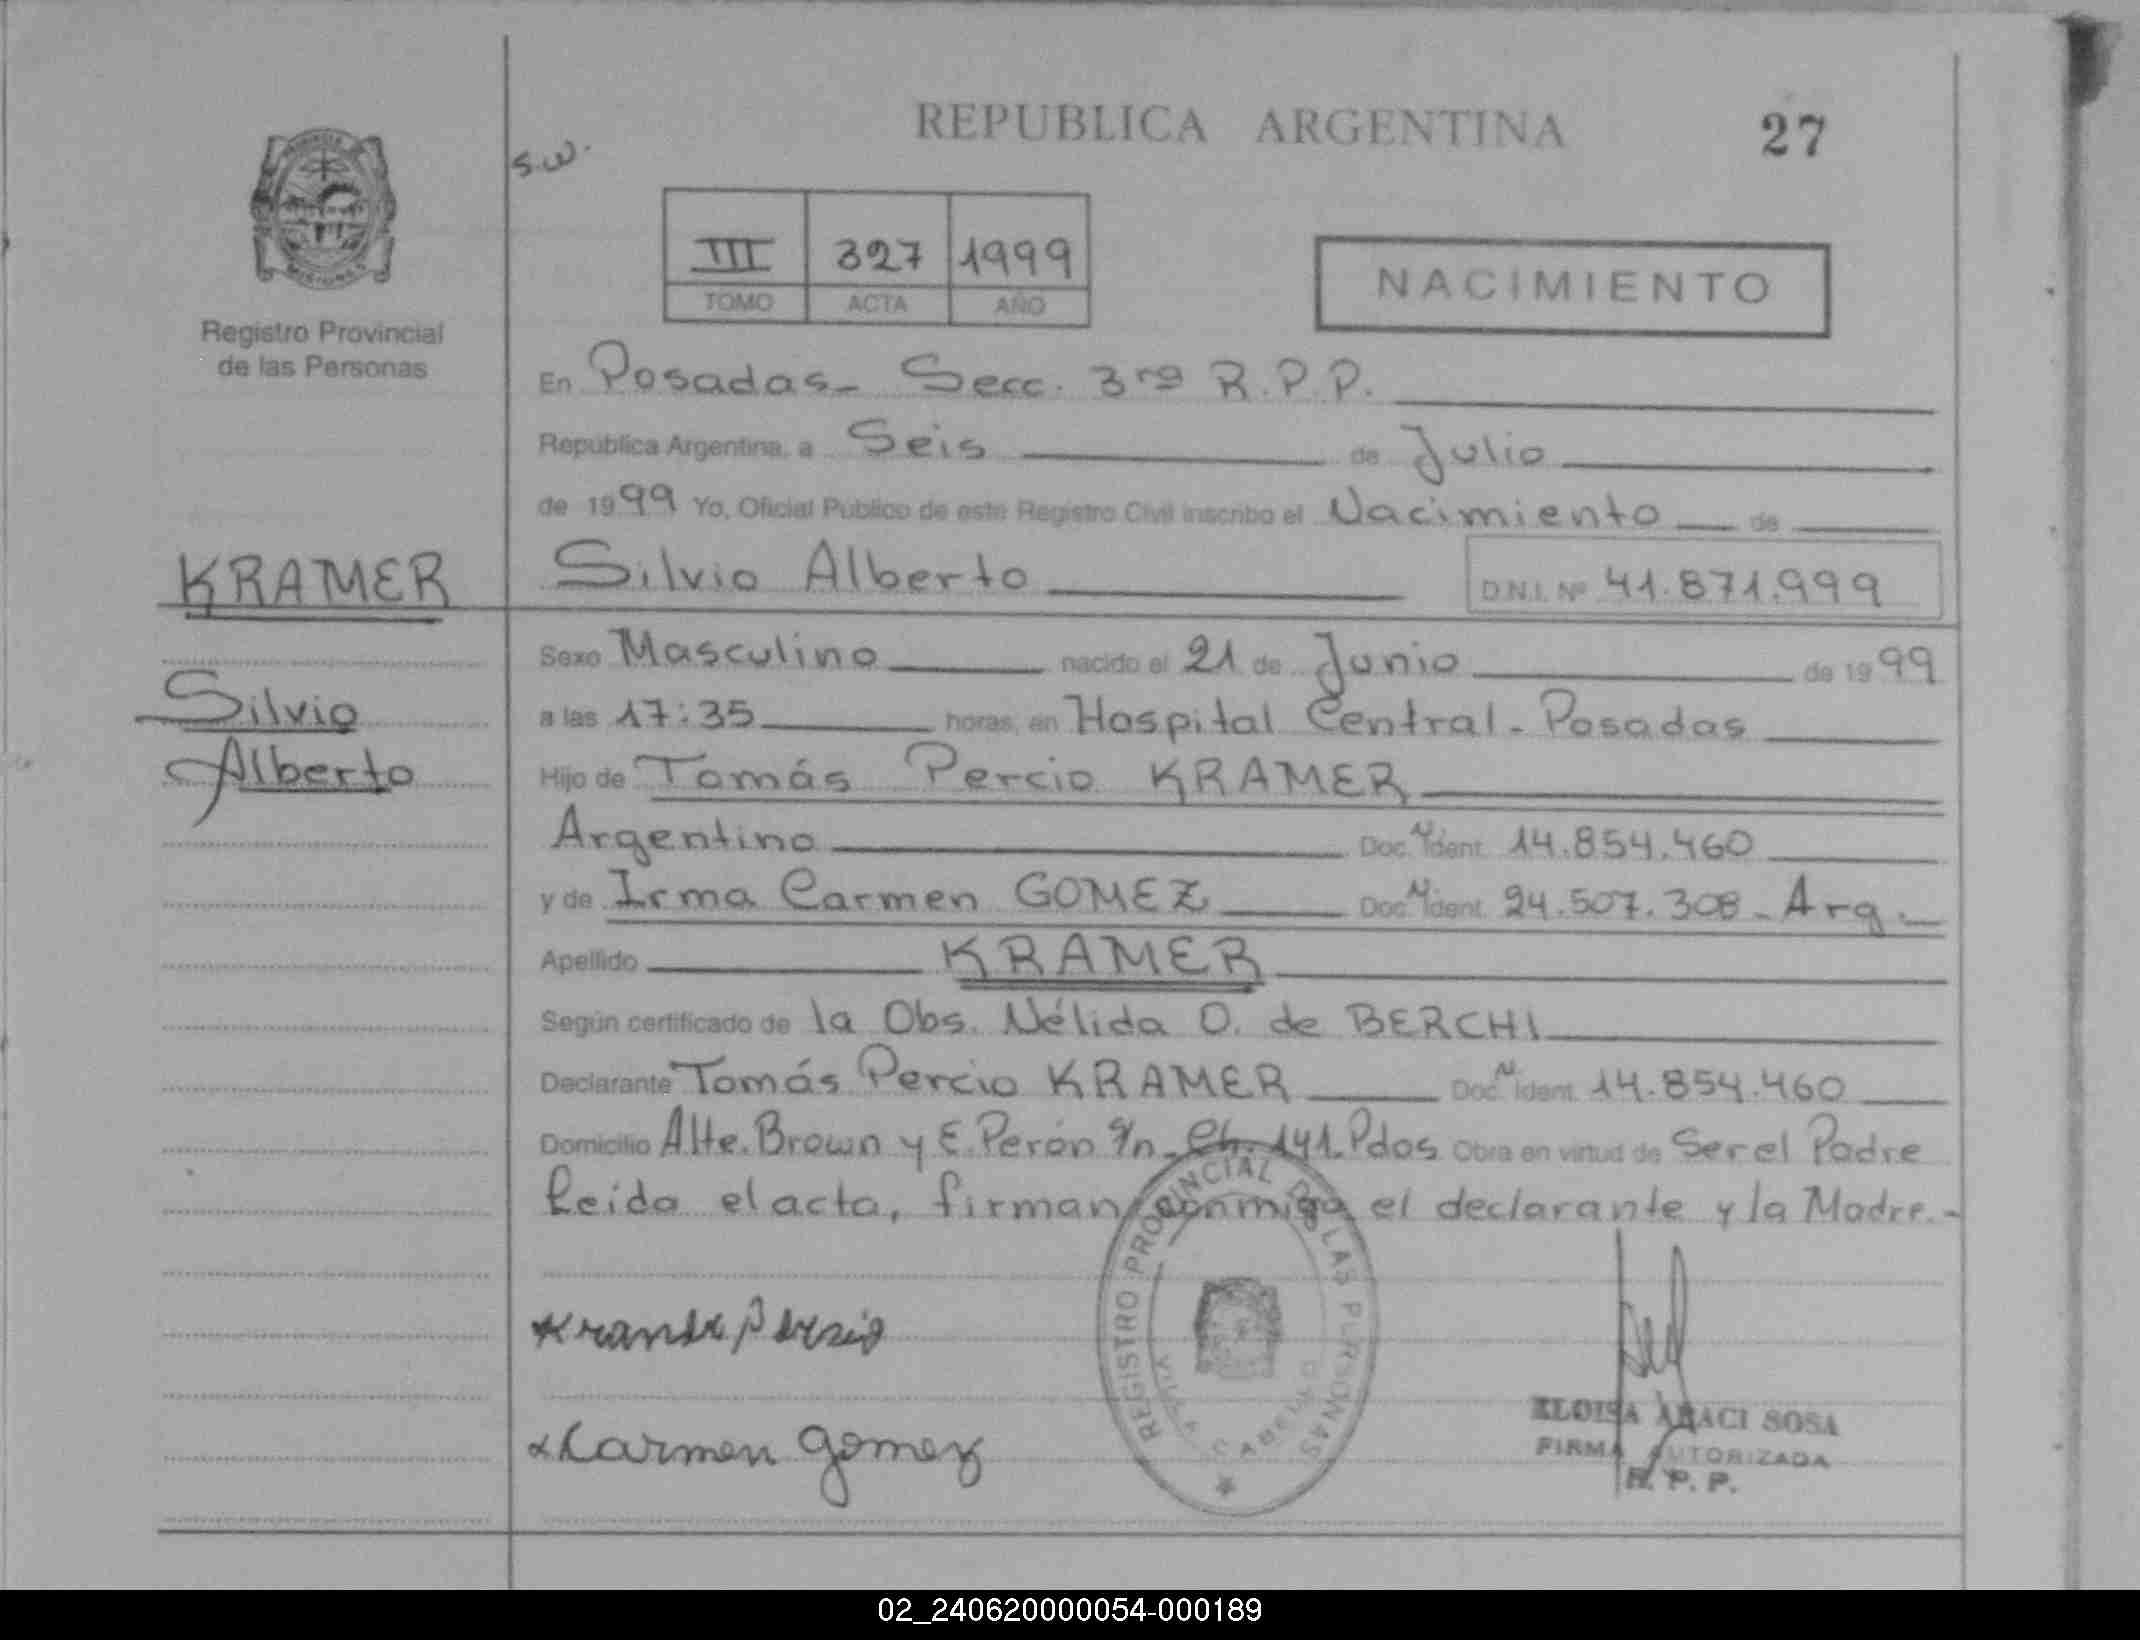 REPUBLICA ARGENTINA 27
s.w.
III 327 1999
TOMO ACTA AÑO
NACIMIENTO
Registro Provincial
de las Personas
En Posadas- Secc. 3ra R.P.P.
República Argentina, a Seis de Julio
de 1999 Yo, Oficial Público de este Registro Civil inscribo el Nacimiento de
KRAMER
Silvio Alberto D.N.I. Nº 41.871.999
Sexo Masculino nacido el 21 de Junio de 1999
Silvio
a las 17:35 horas, en Hospital Central - Posadas
Alberto
Hijo de Tomás Percio KRAMER
Argentino Doc. N Ident. 14.854.460
y de Irma Carmen GOMEZ Doc. N Ident. 24.507.308 - Arg.
Apellido KRAMER
Según certificado de la Obs. Nélida O. de BERCHI
Declarante Tomás Percio KRAMER Doc. N Ident. 14.854.460
Domicilio Alte. Brown y E. Perón s/n - Ch. 141. Pdas Obra en virtud de Ser el Padre
Leido el acta, firman conmigo el declarante y la Madre.-
REGISTRO PROVINCIAL DE LAS PERSONAS
VILLA CABELLO
Carmen Gomez
ELOISA ARACI SOSA
FIRMA AUTORIZADA
R. P. P.
02_240620000054-000189